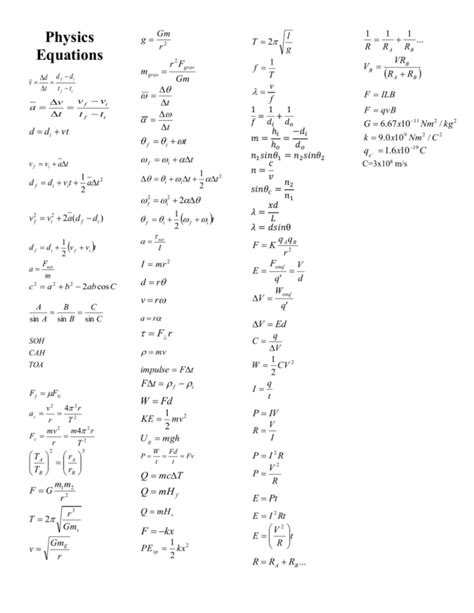 Physics
Equations
v̄ = Δd/Δt = (d_f − d_i)/(t_f − t_i)
a̅ = Δv/Δt = (v_f − v_i)/(t_f − t_i)
d = d_i + vt
v_f = v_i + a̅t
d_f = d_i + v_i t + 1/2 a̅t²
v_f² = v_i² + 2a̅(d_f − d_i)
d_f = d_i + 1/2 (v_f + v_i)t
a = F_net/m
c² = a² + b² − 2ab cos C
A/sin A = B/sin B = C/sin C
SOH
CAH
TOA
F_f = μF_N
a_c = v²/r = 4π²r/T²
F_c = mv²/r = m4π²r/T²
(T_A/T_B)² = (r_A/r_B)³
F = G m₁m₂/r²
T = 2π√(r³/Gm_s)
v = √(Gm_E/r)
g = Gm/r²
m_grav = r²F_grav/Gm
ω̅ = Δθ/Δt
α̅ = Δω/Δt
θ_f = θ_i + ωt
ω_f = ω_i + αt
Δθ = θ_i + ω_i t + 1/2 αΔt²
ω_f² = ω_i² + 2αΔθ
θ_f = θ_i + 1/2 (ω_f + ω_i)t
α = τ_net/I
I = mr²
d = rθ
v = rω
a = rα
τ = F⊥r
ρ = mv
impulse = FΔt
FΔt = ρ_f − ρ_i
W = Fd
KE = 1/2 mv²
U_g = mgh
P = W/t = Fd/t = Fv
Q = mcΔT
Q = mH_f
Q = mH_v
F = −kx
PE_sp = 1/2 kx²
T = 2π√(l/g)
f = 1/T
λ = v/f
1/f = 1/d_i + 1/d_o
m = h_i/h_o = −d_i/d_o
n₁sinθ₁ = n₂sinθ₂
n = c/v
sinθ_c = n₂/n₁
λ = xd/L
λ = dsinθ
F = K q_A q_B/r²
E = F_onq'/q' = V/d
ΔV = W_onq'/q'
ΔV = Ed
C = q/ΔV
W = 1/2 CV²
I = q/t
P = IV
R = V/I
P = I²R
P = V²/R
E = Pt
E = I²Rt
E = (V²/R)t
R = R_A + R_B...
1/R = 1/R_A + 1/R_B ...
V_B = VR_B/(R_A + R_B)
F = ILB
F = qvB
G = 6.67x10⁻¹¹ Nm²/kg²
k = 9.0x10⁹ Nm²/C²
q_e⁻ = 1.6x10⁻¹⁹ C
C=3x10⁸ m/s